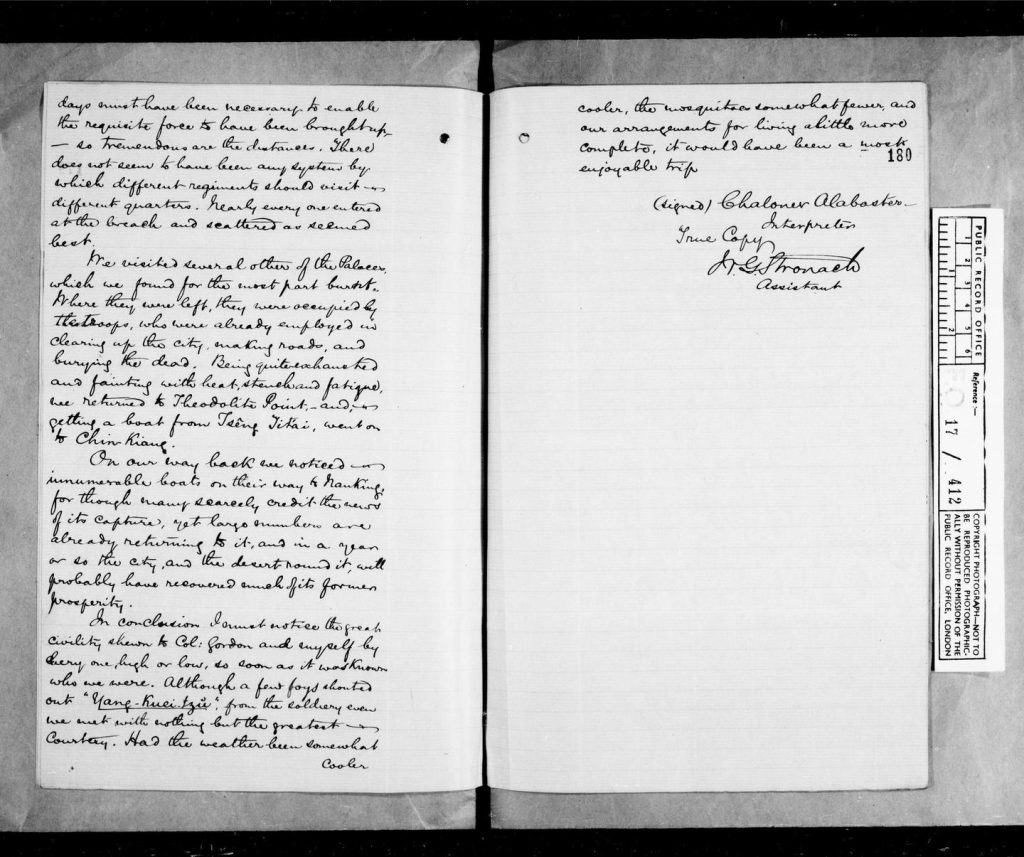 days must have been necessary to enable
the requisite force to have been brought up
— so tremendous are the distances. There
does not seem to have been any system by
which different regiments should visit
different quarters. Nearly every one entered
at the breach and scattered as seemed
best.
We visited several other of the Palaces,
which we found for the most part burnt.
Where they were left, they were occupied by
the troops, who were already employed in
clearing up the city, making roads, and
burying the dead. Being quite exhausted
and fainting with heat, stench and fatigue,
we returned to Theodolite Point, — and,
getting a boat from Tsêng Titai, went on
to Chin-Kiang.
On our way back we noticed
innumerable boats on their way to Nanking,
for though many scarcely credit the news
of its capture, yet large numbers are
already returning to it, and in a year
or so the city, and the desert round it, will
probably have recovered much of its former
prosperity.
In conclusion I must notice the great
civility shewn to Col: Gordon and myself by
every one, high or low, so soon as it was known
who we were. Although a few boys shouted
out "Yang-Kuei-tzŭ", from the soldiery even
we met with nothing but the greatest
courtesy. Had the weather been somewhat
cooler
cooler, the mosquitoes somewhat fewer, and
our arrangements for living a little more
complete, it would have been a most
180
enjoyable trip
(signed) Chaloner Alabaster
Interpreter
True Copy
W. G. Stronach
Assistant
PUBLIC RECORD OFFICE
1 2 3 4 5 6
1 2
Reference:—
FO 17 / 412
COPYRIGHT PHOTOGRAPH—NOT TO
BE REPRODUCED PHOTOGRAPHIC-
ALLY WITHOUT PERMISSION OF THE
PUBLIC RECORD OFFICE, LONDON